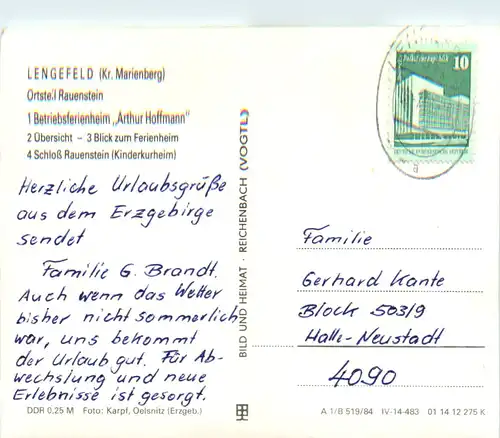 LENGEFELD (Kr. Marienberg)
Ortsteil Rauenstein
1 Betriebsferienheim „Arthur Hoffmann"
2 Übersicht – 3 Blick zum Ferienheim
4 Schloß Rauenstein (Kinderkurheim)
Herzliche Urlaubsgrüße
aus dem Erzgebirge
sendet
Familie G. Brandt.
Auch wenn das Wetter
bisher nicht sommerlich
war, uns bekommt
der Urlaub gut. Für Ab-
wechslung und neue
Erlebnisse ist gesorgt.
DDR 0.25 M Foto: Karpf, Oelsnitz (Erzgeb.)
BILD UND HEIMAT · REICHENBACH (VOGTL)
10
Palast der Republik
Familie
Gerhard Kante
Block 503/9
Halle-Neustadt
4090
A 1/B 519/84 IV-14-483 01 14 12 275 K